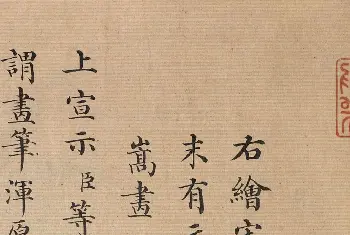 右繪宋
末有元
嵩畫
上宣示臣等
謂畫筆渾厚